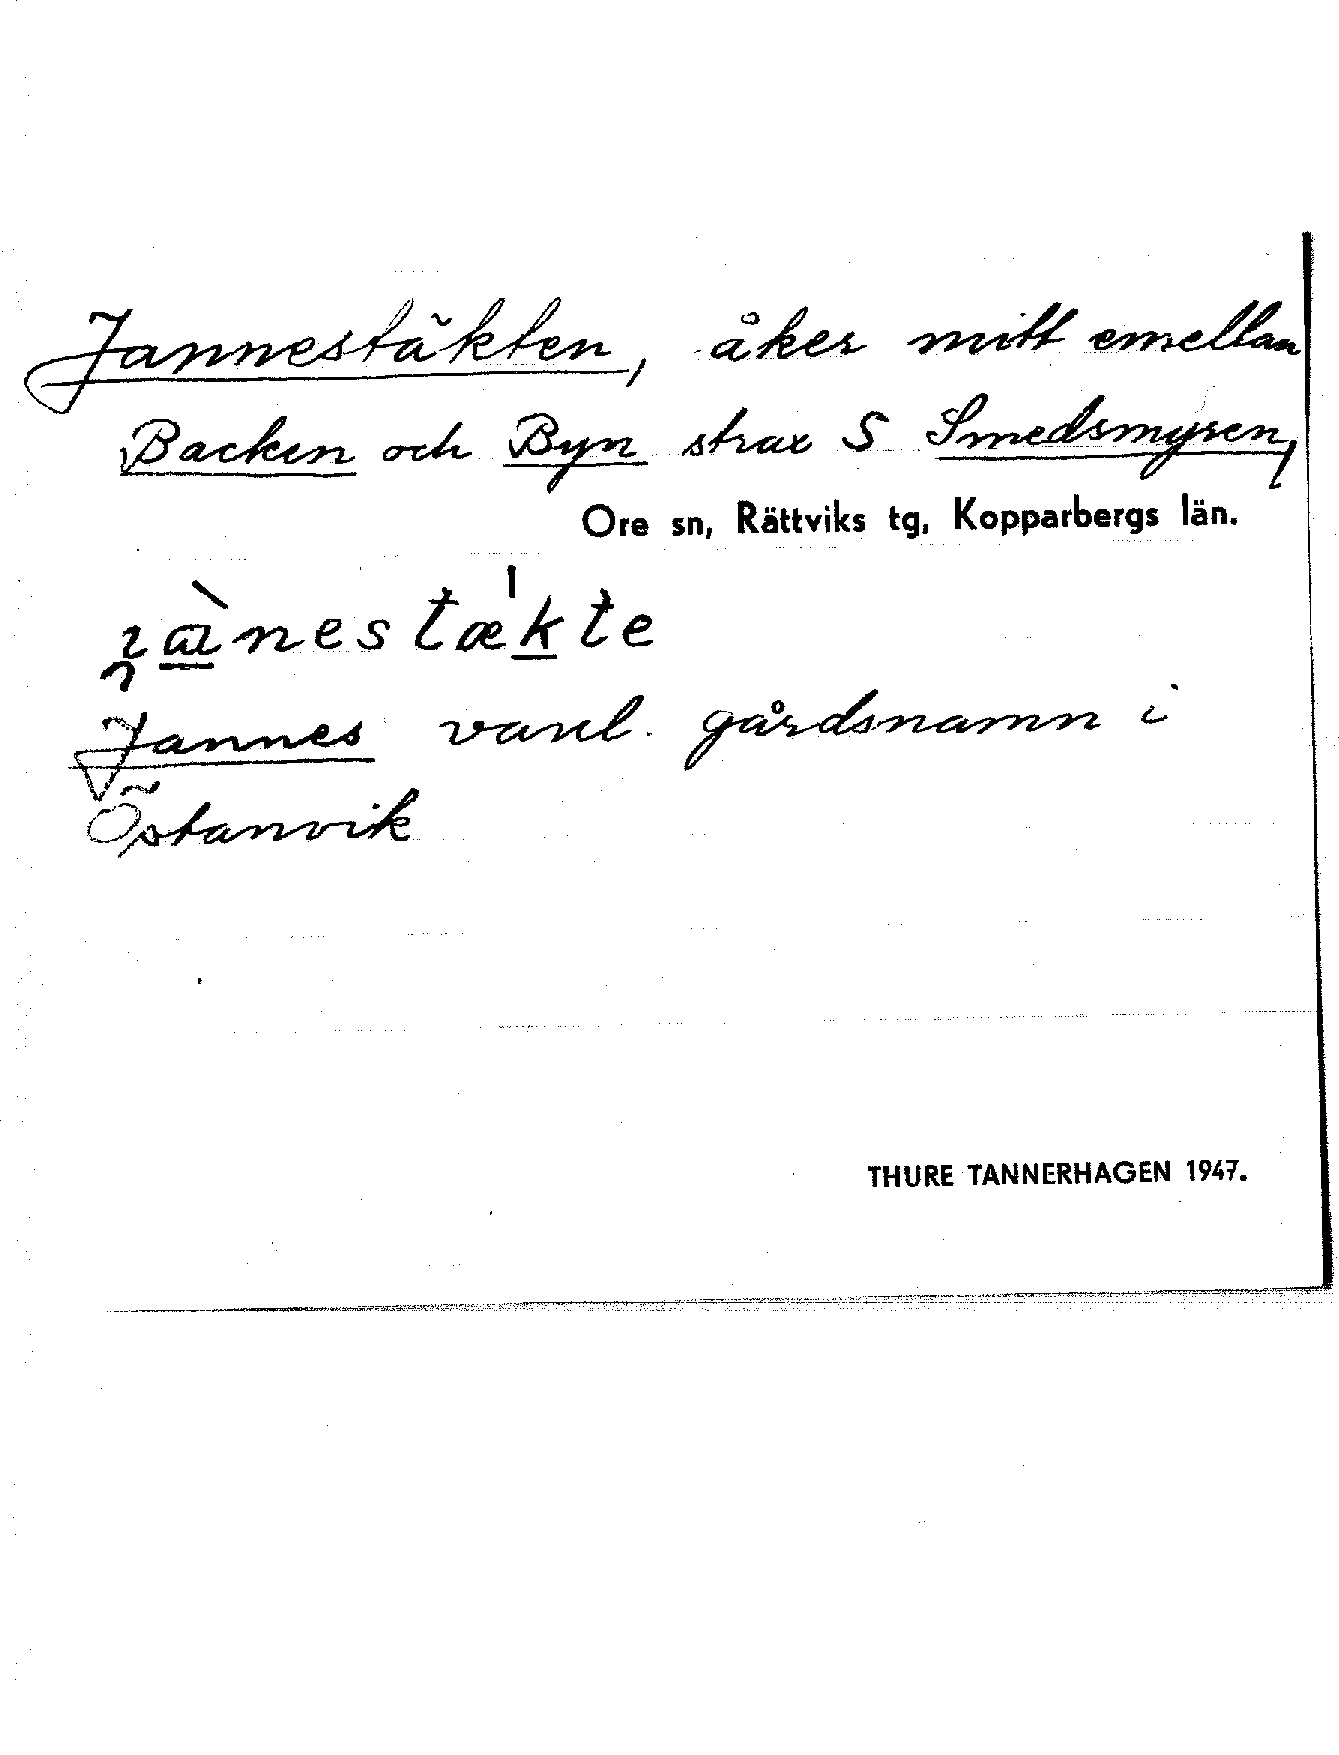 Jannestäkten, åker mitt emellan
Backen och Byn strax S Smedsmyren,
Ore sn, Rättviks tg, Kopparbergs län.
Jannes vanl. gårdsnamn i
Östanvik
THURE TANNERHAGEN 1947.